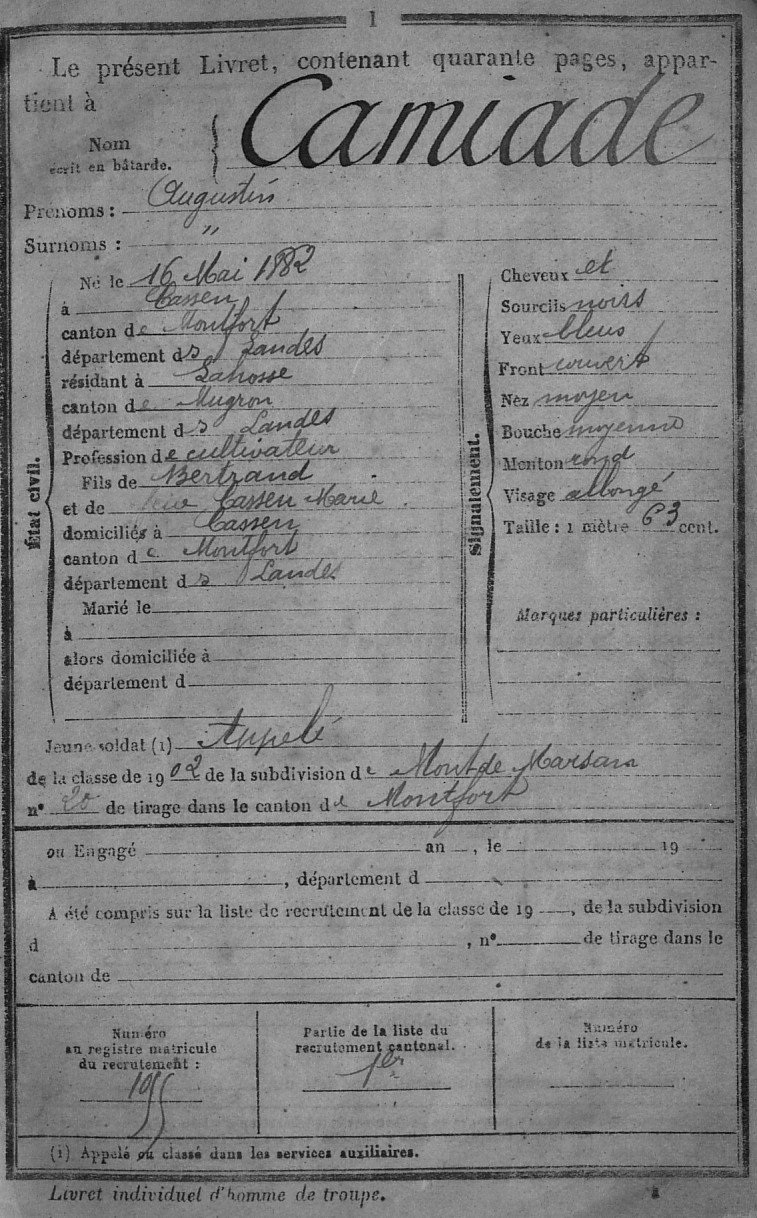 1
Le présent Livret, contenant quarante pages, appar-
tient à
Nom
écrit en bâtarde.
Camiade
Prénoms : Augustin
Surnoms : "
État civil.
Né le 16 Mai 1882
à Cassen
canton de Montfort
département ds Landes
résidant à Lahosse
canton de Mugron
département ds Landes
Profession de cultivateur
Fils de Bertrand
et de Cassen Marie
domiciliés à Cassen
canton de Montfort
département ds Landes
Marié le
à
alors domiciliée à
département d
Signalement.
Cheveux et
Sourcils noirs
Yeux bleus
Front couvert
Nèz moyen
Bouche moyenne
Menton rond
Visage allongé
Taille : 1 mètre 63 cent.
Marques particulières :
Jeune soldat (1) Appelé
de la classe de 1902 de la subdivision de Mont de Marsan
n° 20 de tirage dans le canton de Montfort
ou Engagé an , le 19
à , département d
A été compris sur la liste de recrutement de la classe de 19 , de la subdivision
d , n° de tirage dans le
canton de
Numéro
au registre matricule
du recrutement :
Partie de la liste du
recrutement cantonal.
1er
Numéro
de la liste matricule.
(1) Appelé ou classé dans les services auxiliaires.
Livret individuel d'homme de troupe.